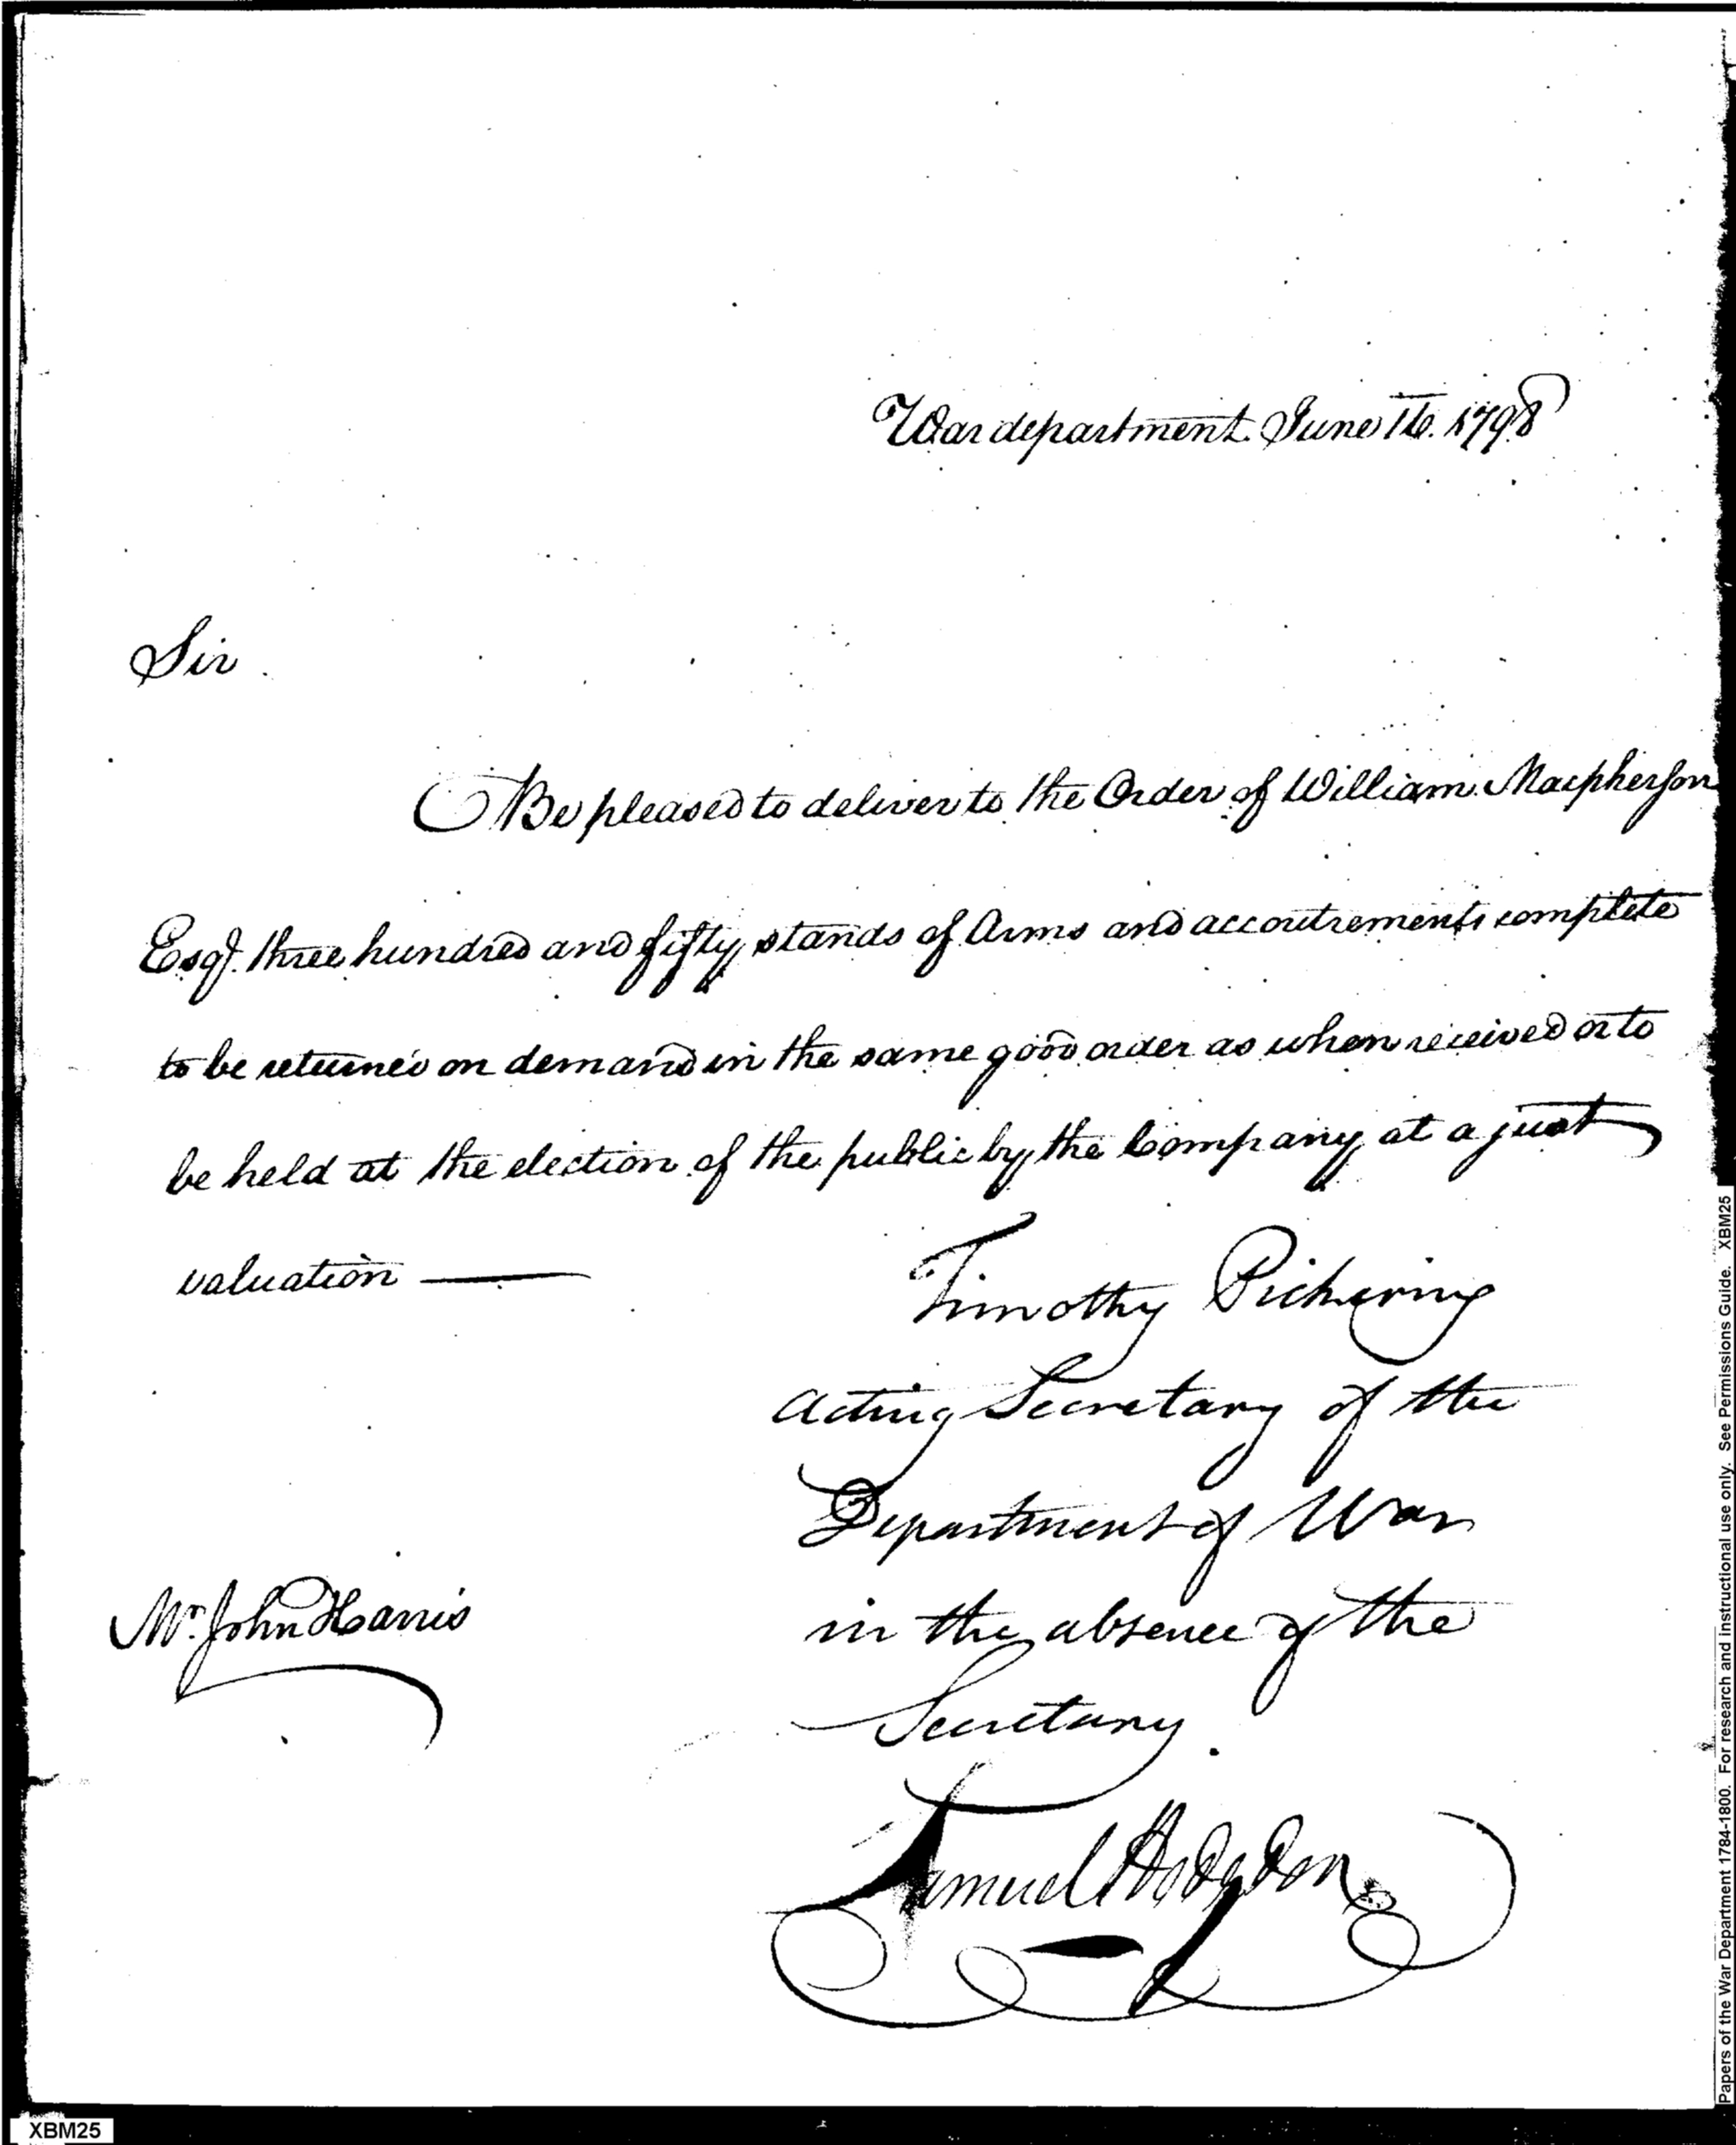 War department June 16. 1798
Sir
Be pleased to deliver to the Order of William Macpherson
Esqr. three hundred and fifty stands of Arms and accoutrements complete
to be returned on demand in the same good order as when received or to
be held at the election of the public by the Company at a just
valuation ——
Timothy Pickering
acting Secretary of the
Department of War
in the absence of the
Secretary.
Mr. John Harris
Samuel Hodgdon
Papers of the War Department 1784-1800. For research and instructional use only. See Permissions Guide. XBM25
XBM25